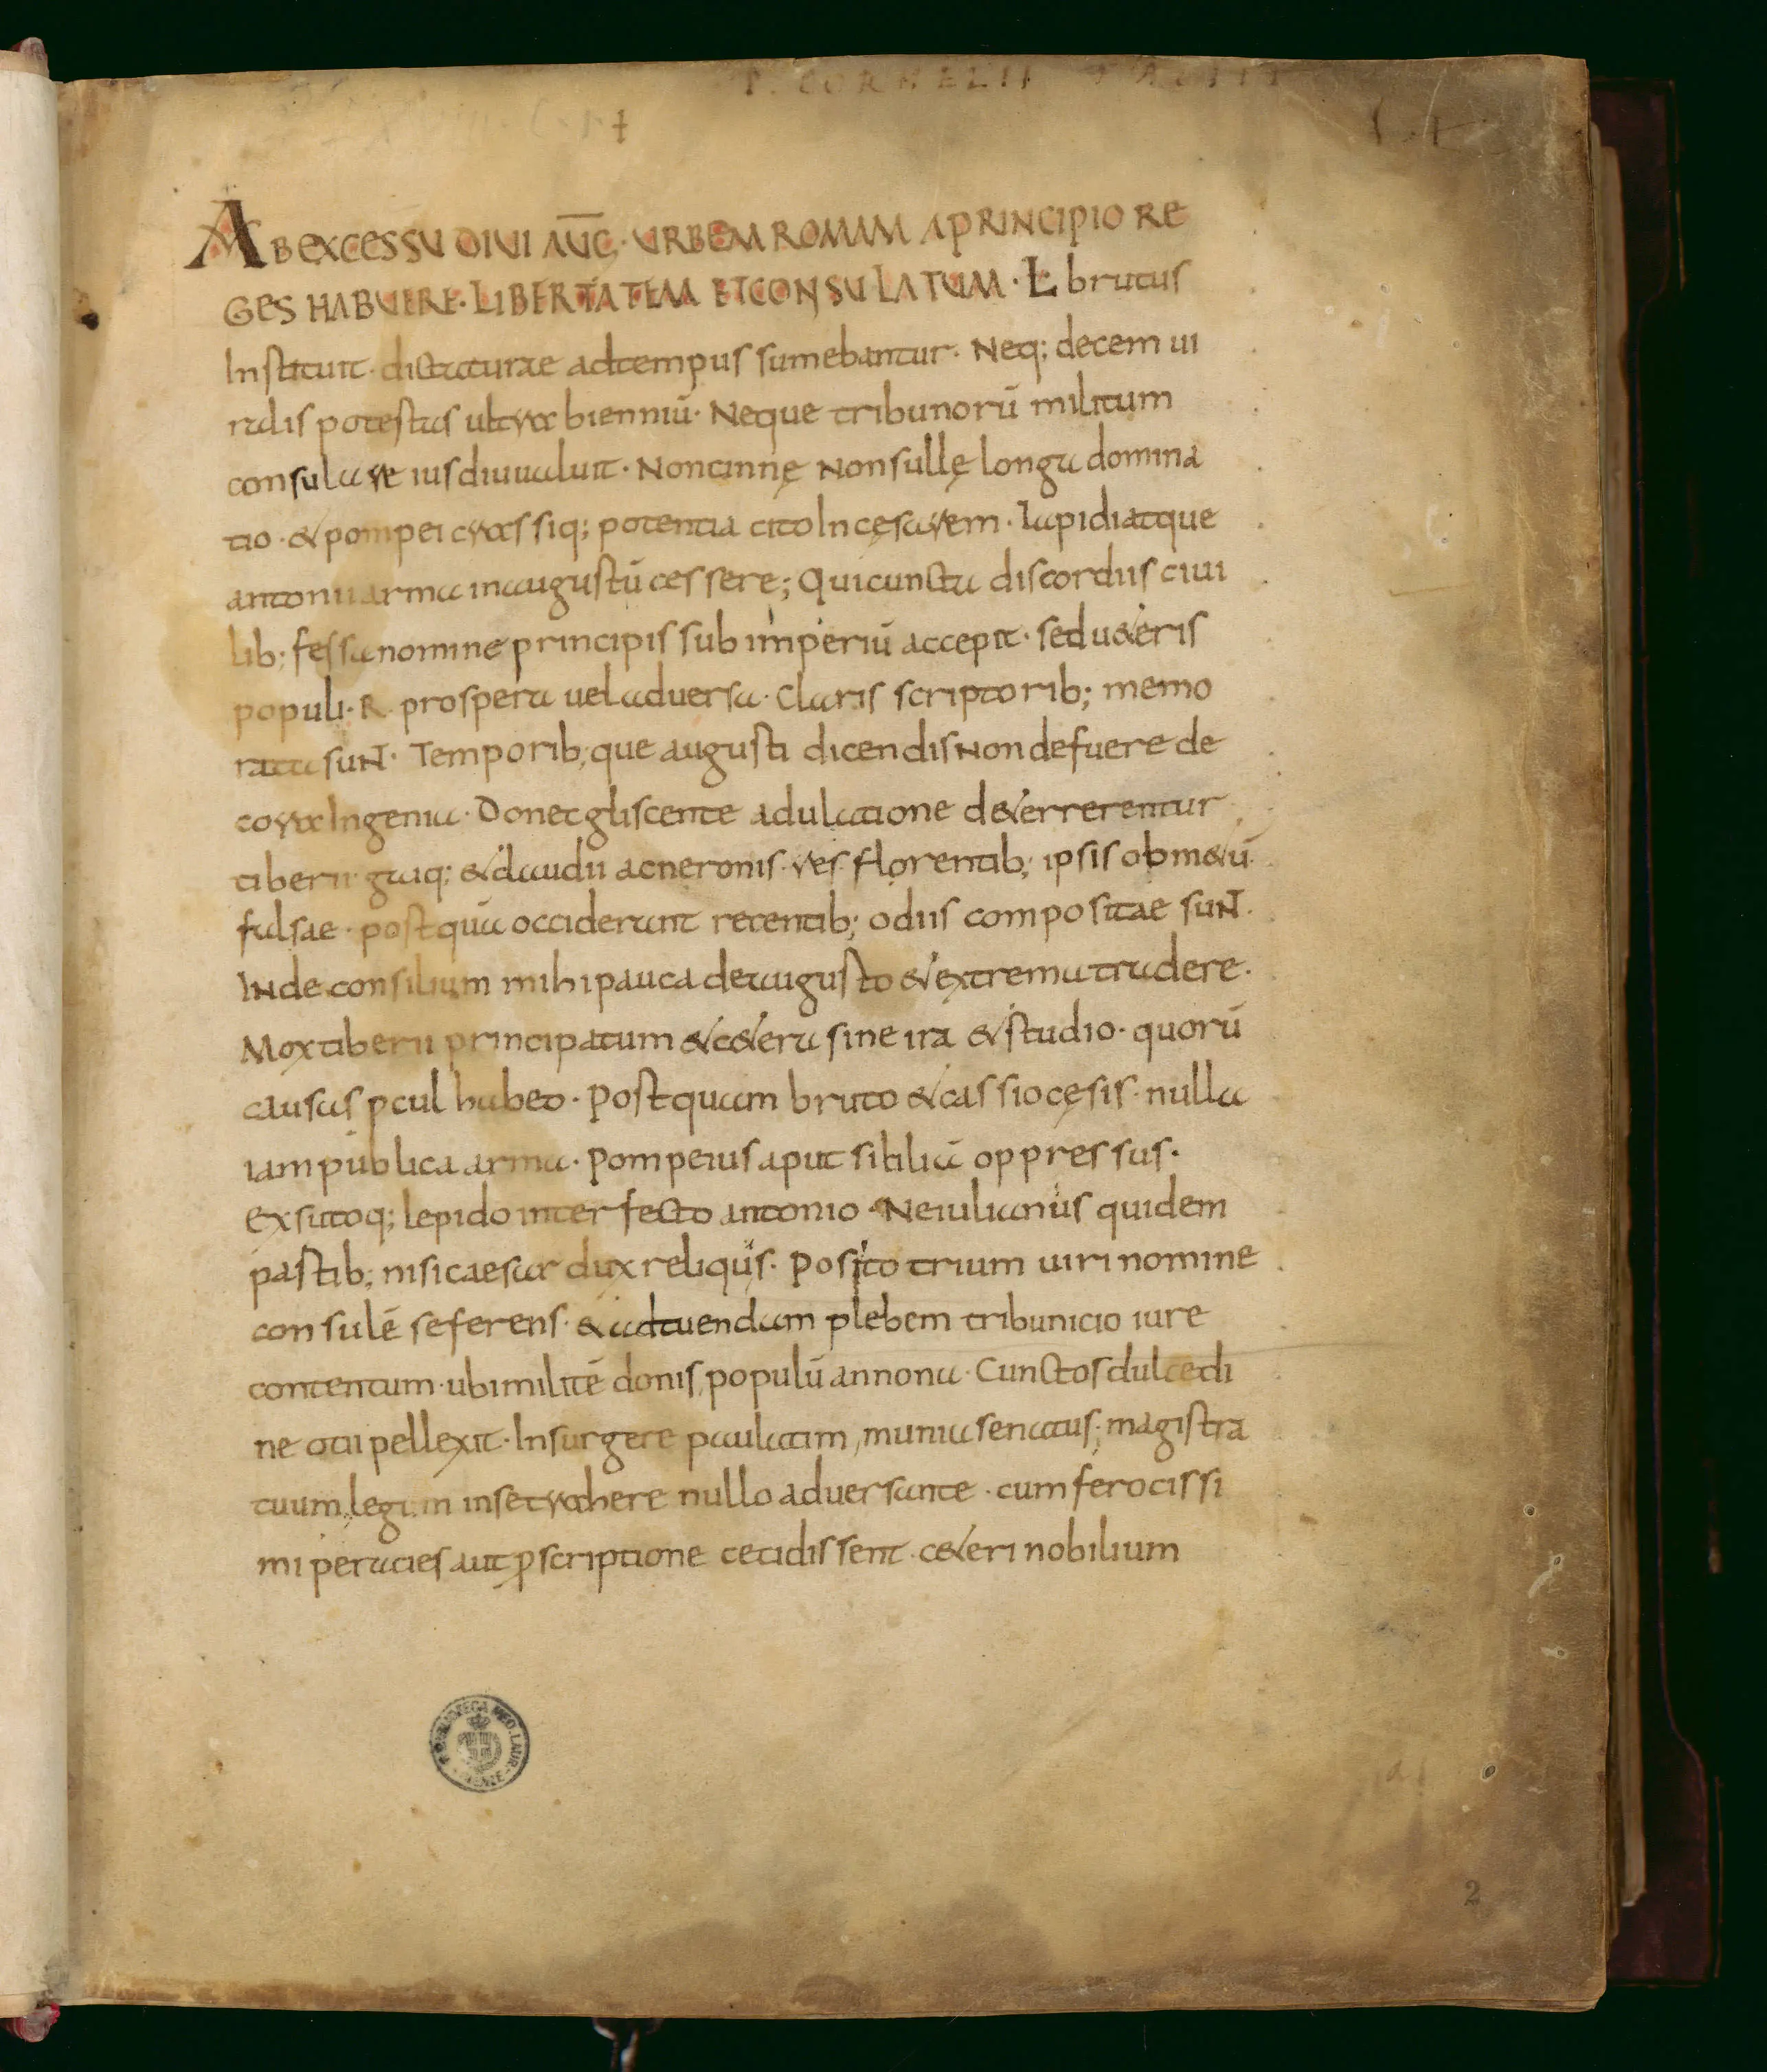 P. CORNELII TACITI
AB EXCESSU DIUI AUG̅· URBEM ROMAM A PRINCIPIO RE
GES HABUERE· LIBERTATEM ET CONSULATUM· L brutus
Instituit· dictaturae adtempus sumebantur· Neq; decem ui
ralis potestas ultra bienniū· Neque tribunorū militum
consulare ius diu ualuit· Non cinnę Non sullę longa domina
tio· & pompei crassiq; potentia cito In cęsarem· Lapidi atque
antonii arma in augustū cessere; Qui cuncta discordiis ciui
lib; fessa nomine principis sub imperiū accepit· sed u&eris
populi· R· prospera uel aduersa· Claris scriptorib; memo
rata suNT· Temporib;que augusti dicendis Non defuere de
cora Ingenia· Donec gliscente adulatione d&errerentur
tiberii· gaiq; & claudii ac neronis· res florentib; ipsis ob m&ū
falsae· postquā occiderant recentib; odiis compositae suNT·
INde consilium mihi pauca de augusto & extrema tradere·
Mox tiberii principatum & c&era sine ira & studio· quorū
causas pcul habeo· Postquam bruto & cassio cęsis· nulla
iam publica arma· Pompeius aput siciliā oppressus·
Exsutoq; lepido interfecto antonio· Ne iulianus quidem
pastib; nisi caesar dux reliqus· Posito trium uiri nomine
consulē se ferens· & ad tuendam plebem tribunicio iure
contentum· ubi militē donis, populū annona· Cunctos dulcedi
ne otii pellexit· Insurgere paulatim, munia senatus; magistra
tuum, legum in se trahere nullo aduersante· cum ferocissi
mi per acies aut pscriptione cecidissent· c&eri nobilium
2